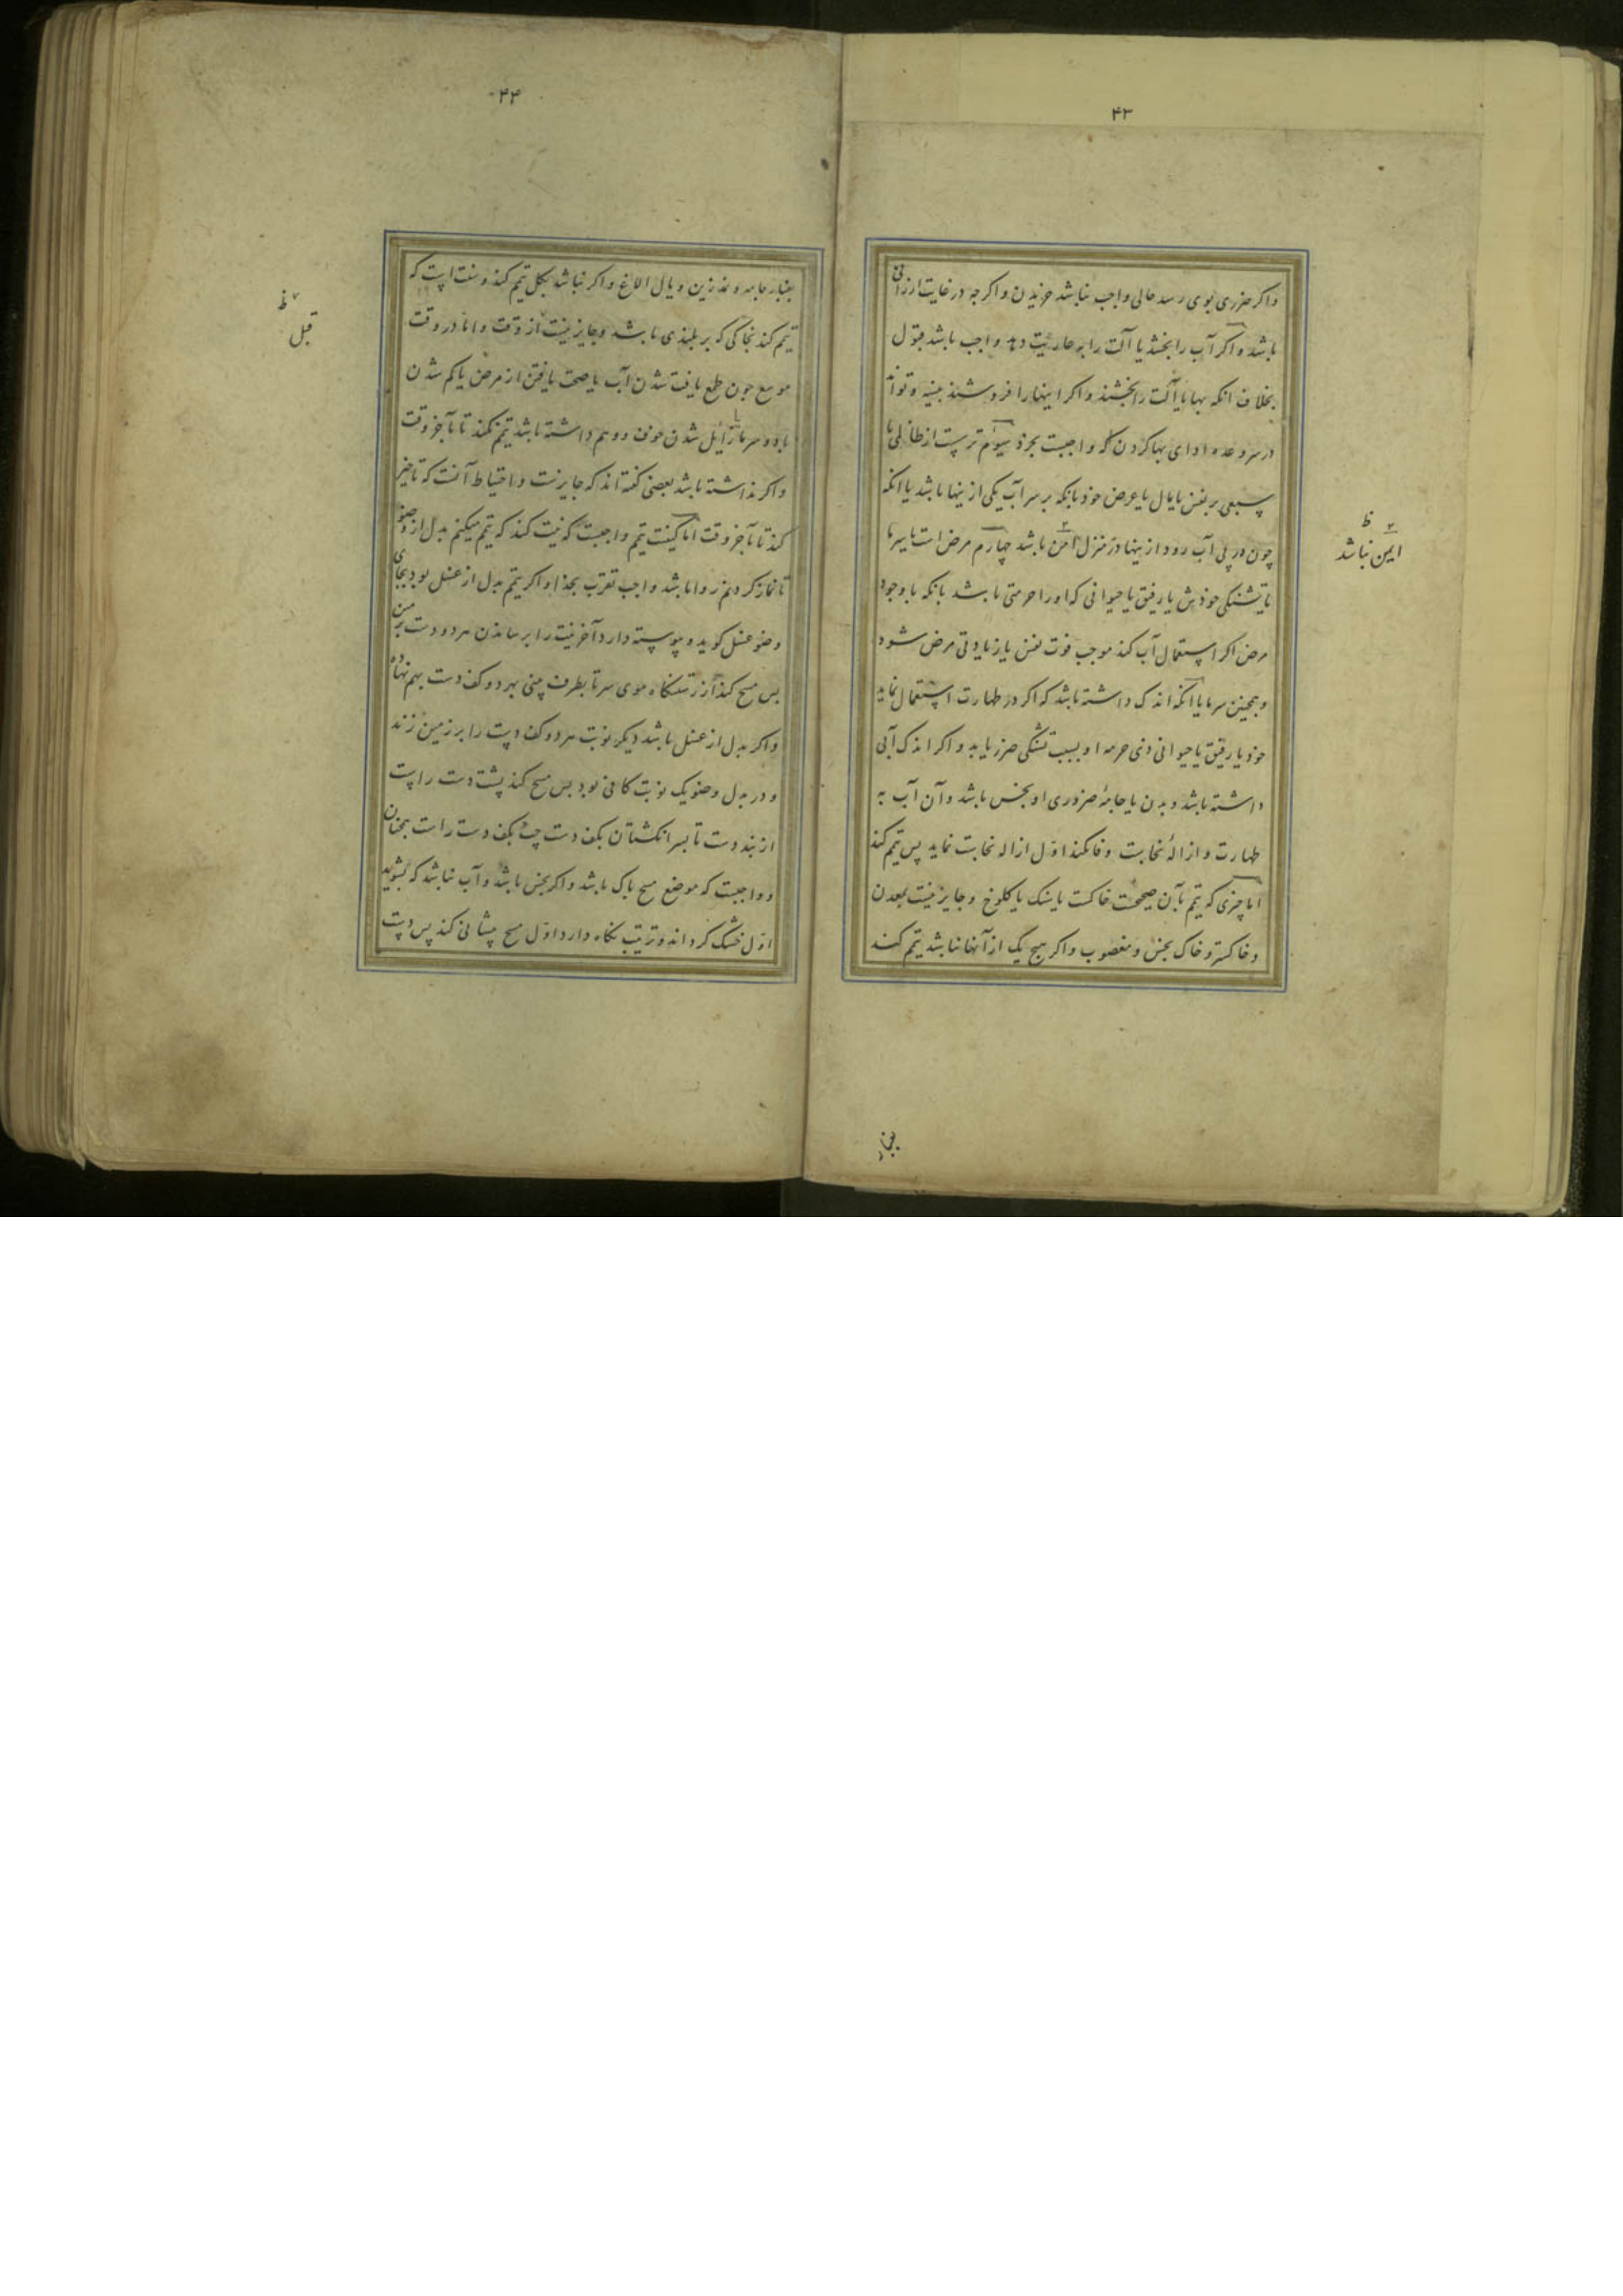 ۴۳
واکر ضرری بوی رسد حالی واجب نباشد خریدن واکر چه در غایت ارزانی
باشد و اکر آب را بخشد یا آلت را بعاریت دهد واجب باشد قبول
بخلاف آنکه بها یا آلت را بخشند و اکر اینها را فروشند بنسیه و تواند
در سر وعده ادای بها کردن که واجبست بخرد سیوم ترس است از ظالمی یا
سبعی بر نفس یا مال یا عرض خود بانکه بر سر آب یکی از ینها باشد یا انکه
چون در پی آب رود از ینها در منزل امن باشد چهارم مرض است یا سرما
یا تشنکی خودش یا رفیق یا حیوانی که او را حرمتی باشد بانکه با وجود
مرض اکر استعمال آب کند موجب فوت نفس یا زیادتی مرض شود
و همچنین سرما یا انکه اندک داشته باشد که اکر در طهارت استعمال نماید
خود یا رفیق یا حیوانی ذی حرمه او بسبب تشنکی ضرر یابد و اکر اندک آبی
داشته باشد و بدن یا جامهٔ ضروری او نجس باشد و آن آب به
طهارت و ازالهٔ نجاست وفا نکند اول ازاله نجاست نماید پس تیمم کند
اما چیزی که تیمم بآن صحیحست خاکست یا سنک یا کلوخ و جایز نیست بمعدن
و خاکستر و خاک نجس و مغصوب و اکر هیچ یک از آنها نباشد تیمم کند
ظ
ایمن نباشد
بغبار
۴۴
بغبار جامه و نمد زین و یال الاغ و اکر نباشد بکل تیمم کند و سنت است که
تیمم کند بخاکی که بر بلندی باشد و جایز نیست از وقت و اما در وقت
موسع چون طمع یافت شدن آب یا صحت یافتن از مرض یا کم شدن
باد و سرما یا زائل شدن خوف و وهم داشته باشد تیمم نکند تا بآخر وقت
و اکر نداشته باشد بعضی کفته اند که جایزست و احتیاط آنست که تاخیر
کند تا بآخر وقت اما کیفیت تیمم واجبست که نیت کند که تیمم میکنم بدل از وضو
تا نماز کردنم روا باشد واجب تقرب بخدا و اکر تیمم بدل از غسل بود بجای
وضو غسل کوید و پیوسته دارد آخر نیت را برساندن هر دو دست بر زمین
پس مسح کند از رستنکاه موی سر تا بطرف بینی بهر دو کف دست بهم نهاده
و اکر بدل از غسل باشد دیکر نوبت هر دو کف دست را بر زمین زند
و در بدل وضو یک نوبت کافی بود پس مسح کند پشت دست راست
از بند دست تا بسر انکشتان بکف دست چپ بکف دست راست همچنان
و واجبست که موضع مسح پاک باشد و اکر نجس باشد و آب نباشد که بشوید
اول خشک کرداند و ترتیب نکاه دارد اول مسح پیشانی کند پس دست
ظ
قبل